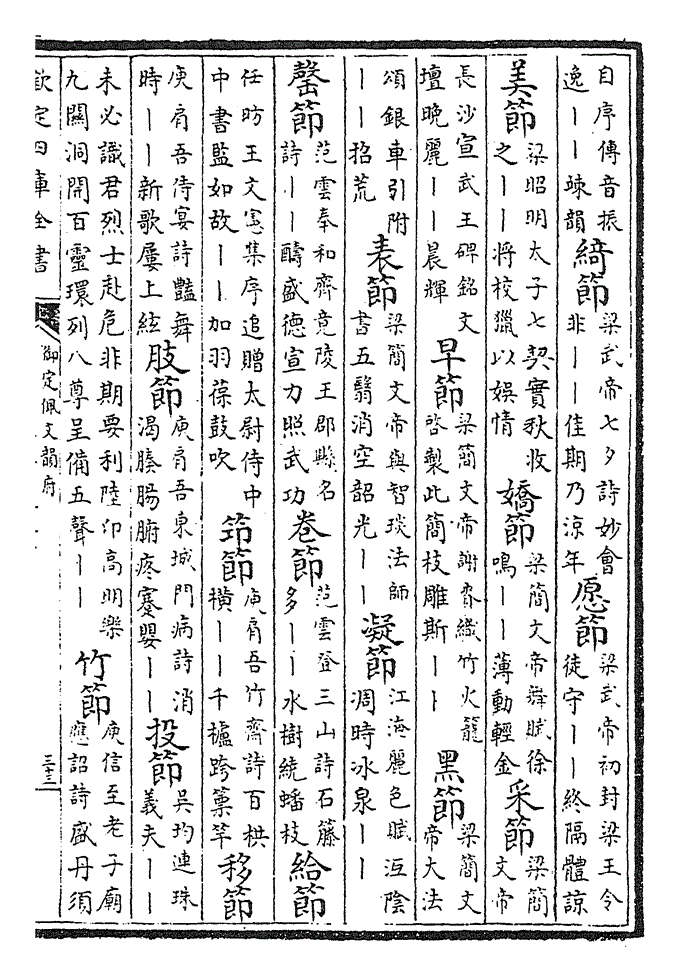 自序傳音振逸丨丨竦韻綺節梁武帝七夕詩妙會非丨丨佳期乃涼年愿節梁武帝初封梁王令徒守丨丨終隔體諒
美節梁昭明太子七契實秋收之丨丨將校獵以娛情嬌節梁簡文帝舞賦徐鳴丨丨薄動輕金采節梁簡文帝
長沙宣武王碑銘文壇晚麗丨丨晨輝早節梁簡文帝謝賚織竹火籠啓製此簡枝雕斯丨丨黑節梁簡文帝大法
頌銀車引附丨丨招荒表節梁簡文帝與智琰法師書五翳消空韶光丨丨凝節江淹麗色賦沍陰凋時冰泉丨丨
罄節范雲奉和齊竟陵王郡縣名詩丨丨疇盛德宣力照武功卷節范雲登三山詩石籐多丨丨水樹繞蟠枝給節
任昉王文憲集序追贈太尉侍中中書監如故丨丨加羽葆鼓吹筠節庾肩吾竹齋詩百栱橫丨丨千櫨跨篻竿移節
庾肩吾侍宴詩豔舞時丨丨新歌屢上絃肢節庾肩吾東城門病詩消渴腠腸腑疼蹇嬰丨丨投節吳均連珠義夫丨丨
未必識君烈士赴危非期要利陸卬高明樂九關洞開百靈環列八尊呈備五聲丨丨竹節庾信至老子廟應詔詩盛丹須
欽定四庫全書
御定佩文韻府
三十三